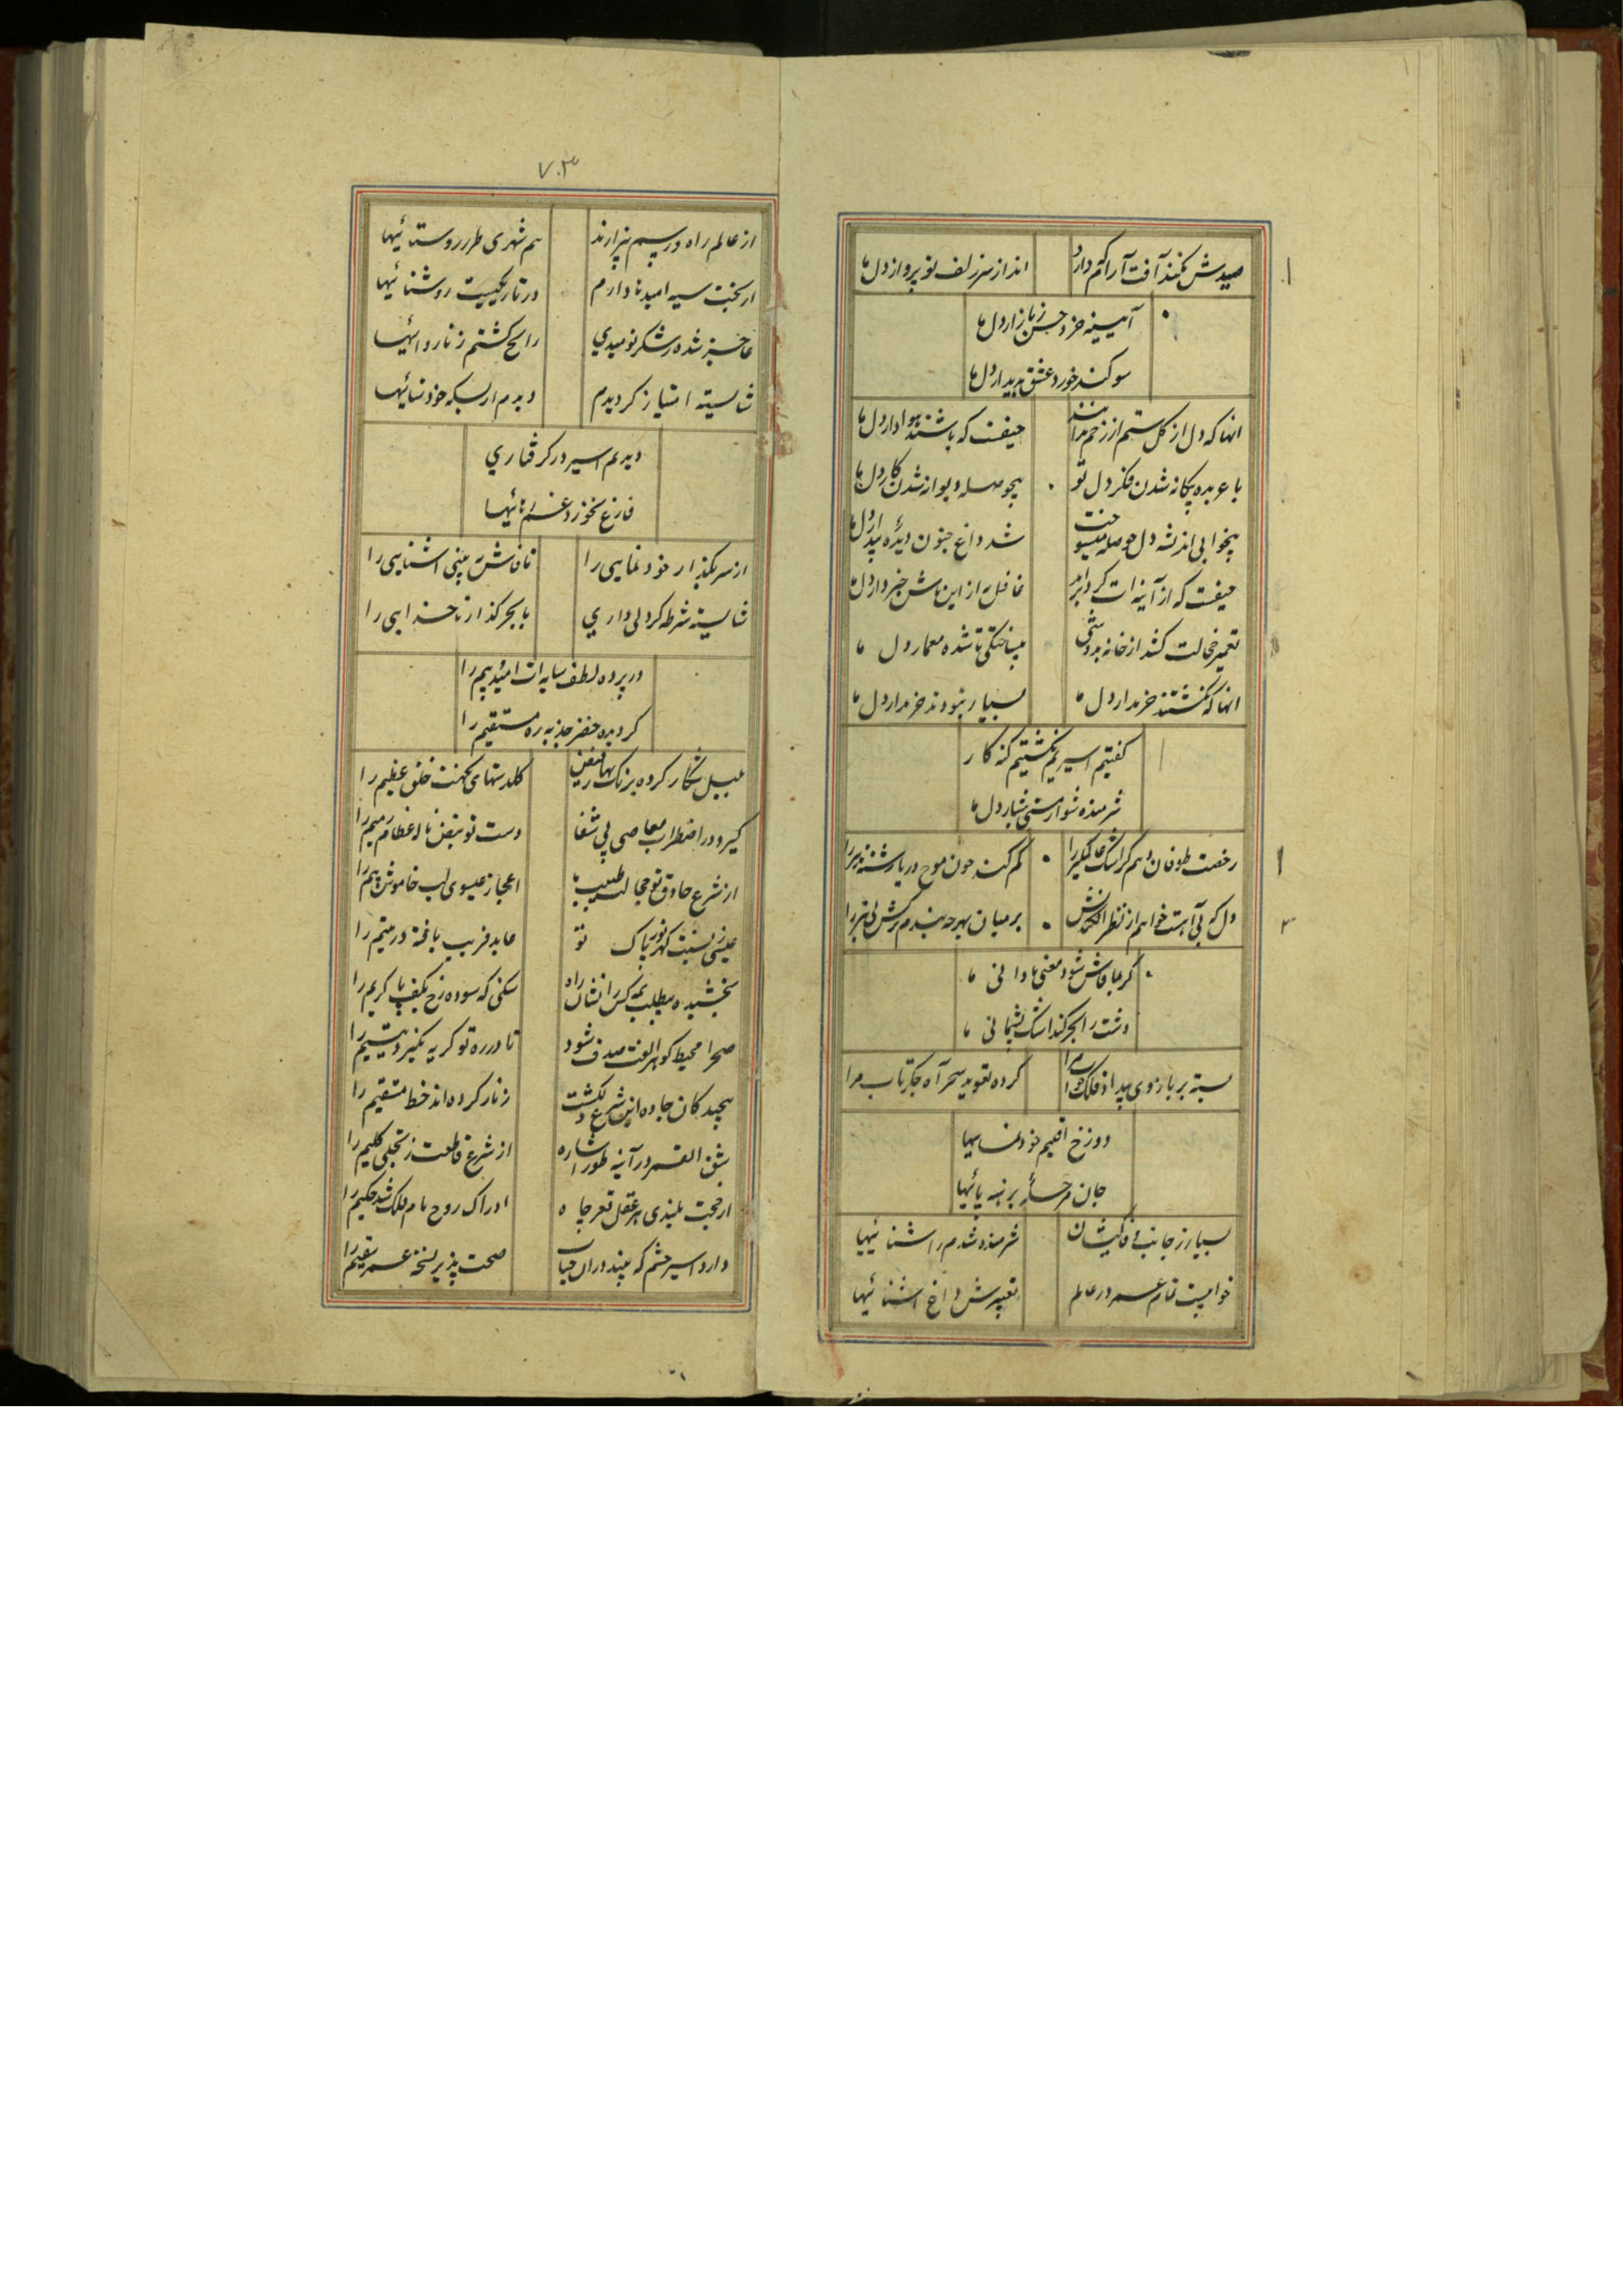 صیدش بکمند آفت آرا که دارد
انداز سر زلف تو پرواز دل ما
آیینه خرد حسن ز بازار دل ما
سوکند خورد عشق بدیدار دل ما
انها که دل از کل ستم از زخم ندانند
حیفست که باشند هوادار دل ما
با عربده بیکانه شدن فکر دل تو
بیحوصله دیوانه شدن کار دل ما
بیخوابی اندیشه دل حوصله میسوخت
شد داغ جنون دیده بیدار دل ما
حیفست که از آینه ات کرد برآید
غافل از این باش خبردار دل ما
تعمیر خجالت کشد از خانه بدوشی
بیساختکی تا شده معمار دل ما
انها که نکشتند خریدار دل ما
بسیار نبودند خریدار دل ما
کفتیم اسیریم نکشتیم کنه کار
شرمنده شو ار مستی شیار دل ما
رخصت طوفان دهم کر اشک عالمکیر را
کم کند چون موج دریا رشته زنجیر را
دل که بی آهست خواهم از نظر افکندنش
بر میان بهر چه بندم ترکش بی تیر را
کر بما فاش شود معنی نادانی ما
دشت را بحر کند اشک پشیمانی ما
بسته بر بازوی بیداد فلک خواب مرا
کرده تعویذ سحر آه جکرتاب مرا
دوزخ اقلیم خودنماییها
جان مرحله برهنه پائیها
بسیار ز جانب وفاکیشان
شرمنده شدم ز آشنائیها
خوابیست تمام عمر در عالم
تعبیرش داغ آشنائیها
۷۰۳
از عالم راه و رسم بیزارند
هم شهری طرز روستائیها
از بخت سیه امیدها دارم
در تاریکیست روشنائیها
عاجز شده رشکر نومیدی
رایج کشتم ز نارواییها
شایسته امتیاز کردیدم
دیدم از بسکه خودنمائیها
دیدیم اسیر در کرفتاری
فارغ نخورد غم رهائیها
از سر بکذار خودنمایی را
تا فاش ببینی آشنایی را
شایسته شرطه کر دلی داری
با بحر کذار ناخدایی را
در پرده لطف سایه ات امید و بیم را
کردیده خضر جذبه ره مستقیم را
بلبل شکار کرده برنک بهار فیض
کلدستهای نکهت خلق عظیم را
کیرد در اضطراب معاصی پی شفا
دست تو نبض ناله عظام رمیم را
از شرع حاذق تو مجال طبیب ما
اعجاز عیسوی لب خاموش بیم را
عیسی ز نسبت کهر نور پاک تو
عابد فریب یافته در یتیم را
بخشیده مطلب همه کس را نشان راه
سنکی که سوده رخ بکف پا کریم را
صحرا محیط کوهر الفت صدف شود
تا در ره تو کریه نکیرد یتیم را
پیچیدکان جاده این شرع دلکشت
زنار کرده اند خط مستقیم را
شق القمر در آینه طور اشاره
از شرع قاطعت ز تجلی کلیم را
از حجت بلندی هر عقل قعر چاه
ادراک روح نام ملک شد حکیم را
دارد اسیر چشم که بیند در آن جناب
صحت پذیر نسخه عمر سقیم را